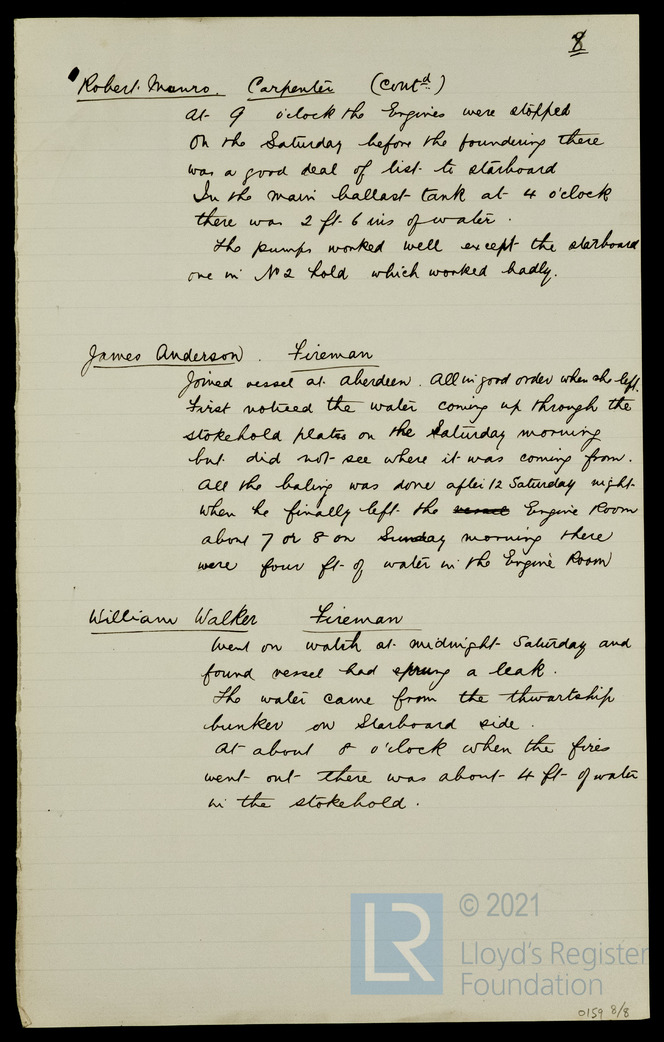 8
Robert Munro. Carpenter (contd.)
At 9 o'clock the Engines were stopped
On the Saturday before the foundering there
was a good deal of list to starboard
In the main ballast tank at 4 o'clock
there was 2 ft 6 ins of water.
The pumps worked well except the starboard
one in No 2 hold which worked badly.
James Anderson. Fireman
Joined vessel at Aberdeen. All in good order when she left.
First noticed the water coming up through the
stokehold plates on the Saturday morning
but did not see where it was coming from.
All the baling was done after 12 Saturday night
When he finally left the vessel Engine Room
about 7 or 8 on Sunday morning there
were four ft of water in the Engine Room
William Walker Fireman
Went on watch at midnight Saturday and
found vessel had sprung a leak.
The water came from the thwartship
bunker on Starboard side.
At about 8 o'clock when the fires
went out there was about 4 ft of water
in the stokehold.
LR © 2021
Lloyd's Register
Foundation
0159 8/8